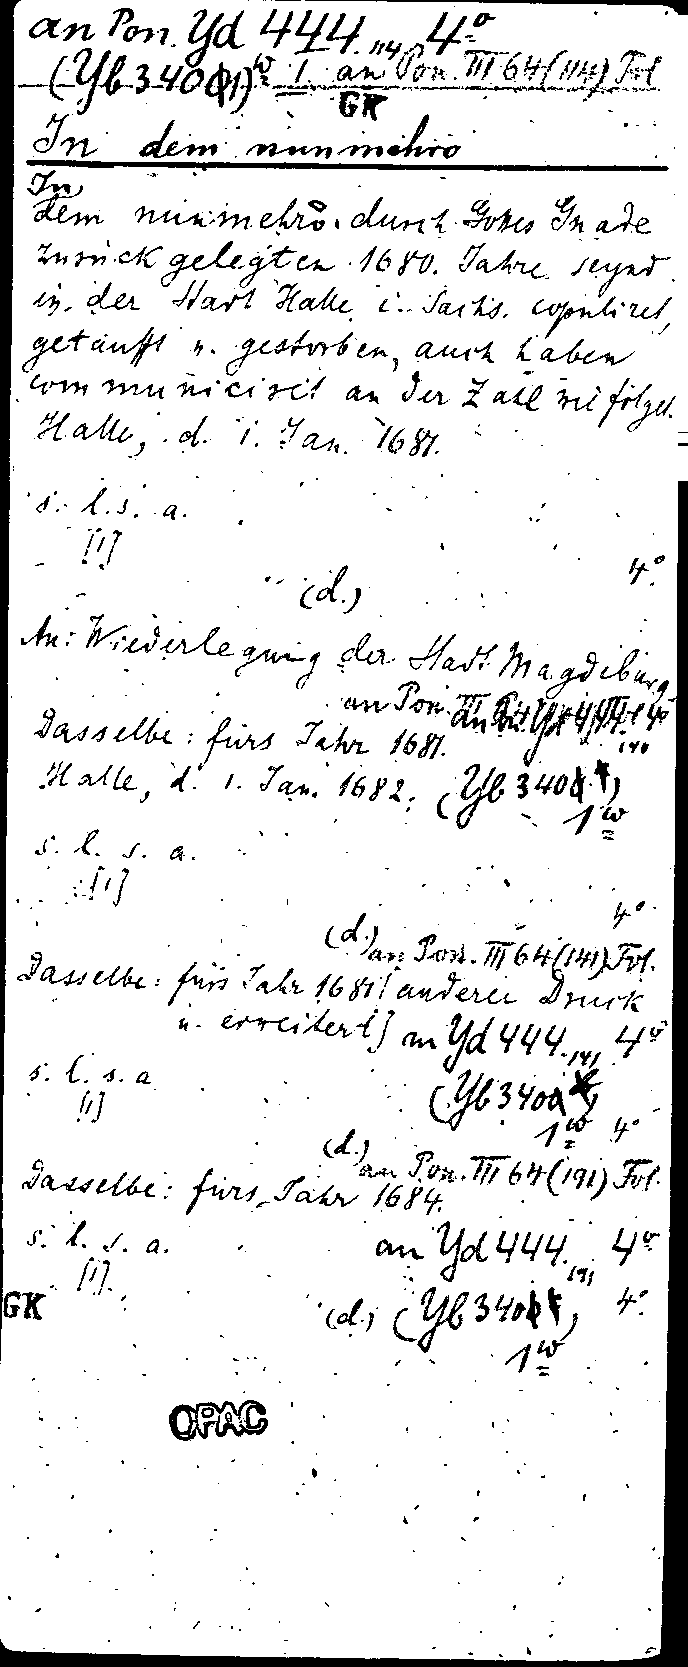 an Pon. Yd 444. 114 4°
(Yb 3400 1) w 1. an Pon. III 64 (114) Fol
GK
In dem nunmehro
In
dem nunmehro durch Gottes Gnade
zurück gelegten 1680. Jahre seynd
in der Stadt Halle i. Sachs. copuliret,
getaufft u. gestorben, auch haben
communiciret an der Zahl wie folget.
Halle, d. 1. Jan. 1681.
s. l. s. a.
[1]
4°.
(d.)
An: Wiederlegung der Stadt Magdeburg
an Pon. III 64 an Pon. Yd 444. 4°
140
Dasselbe: fürs Jahr 1681.
Halle, d. 1. Jan. 1682. (Yb 340
1 w
s. l. s. a.
[1]
4°.
(d.)
an Pon. III 64 (141) Fol.
Dasselbe: fürs Jahr 1681 [anderer Druck
u. erweitert] an Yd 444. 141 4°
s. l. s. a
[1]
(Yb 340
1 w 4°
(d.)
an Pon. III 64 (191) Fol.
Dasselbe: fürs Jahr 1684.
s. l. s. a. an Yd 444. 191 4°
[1].
GK
(d.) (Yb 340 4°.
1 w
OPAC